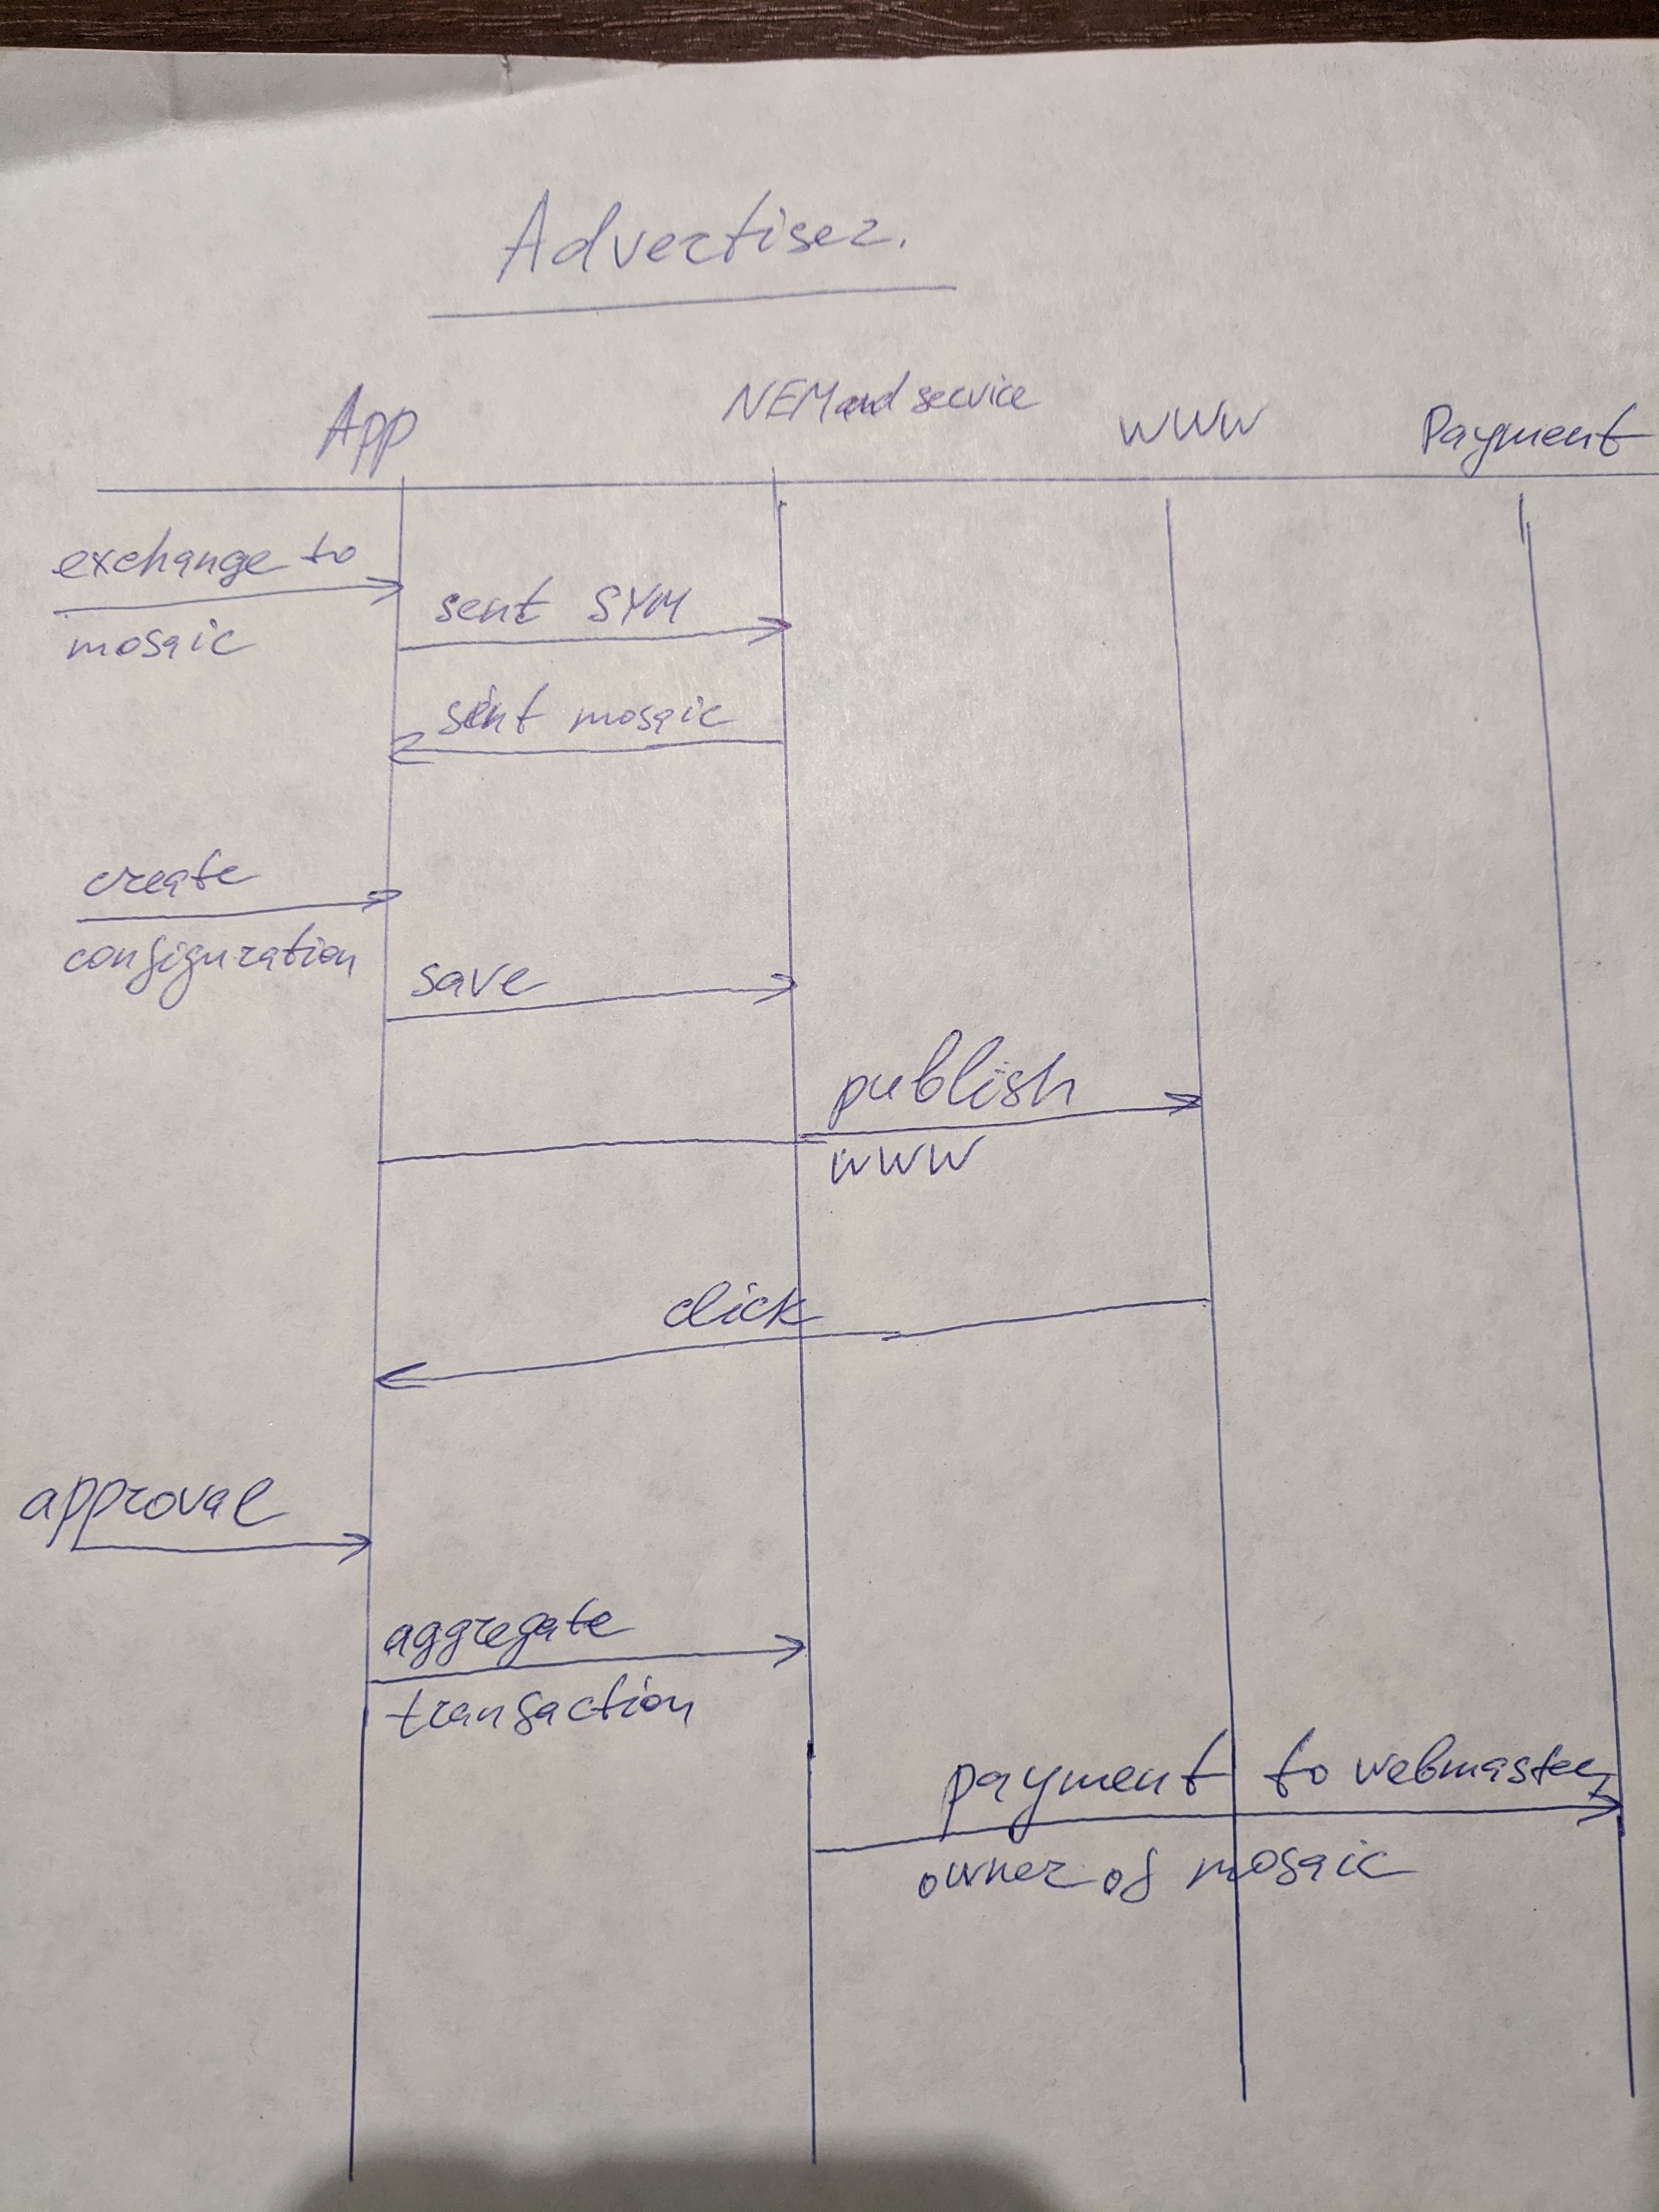 Advertiser.
App NEM and service WWW Payment
exchange to
mosaic
sent SYM
sent mosaic
create
configuration
save
publish
WWW
click
approval
aggregate
transaction
payment to webmaster,
owner of mosaic